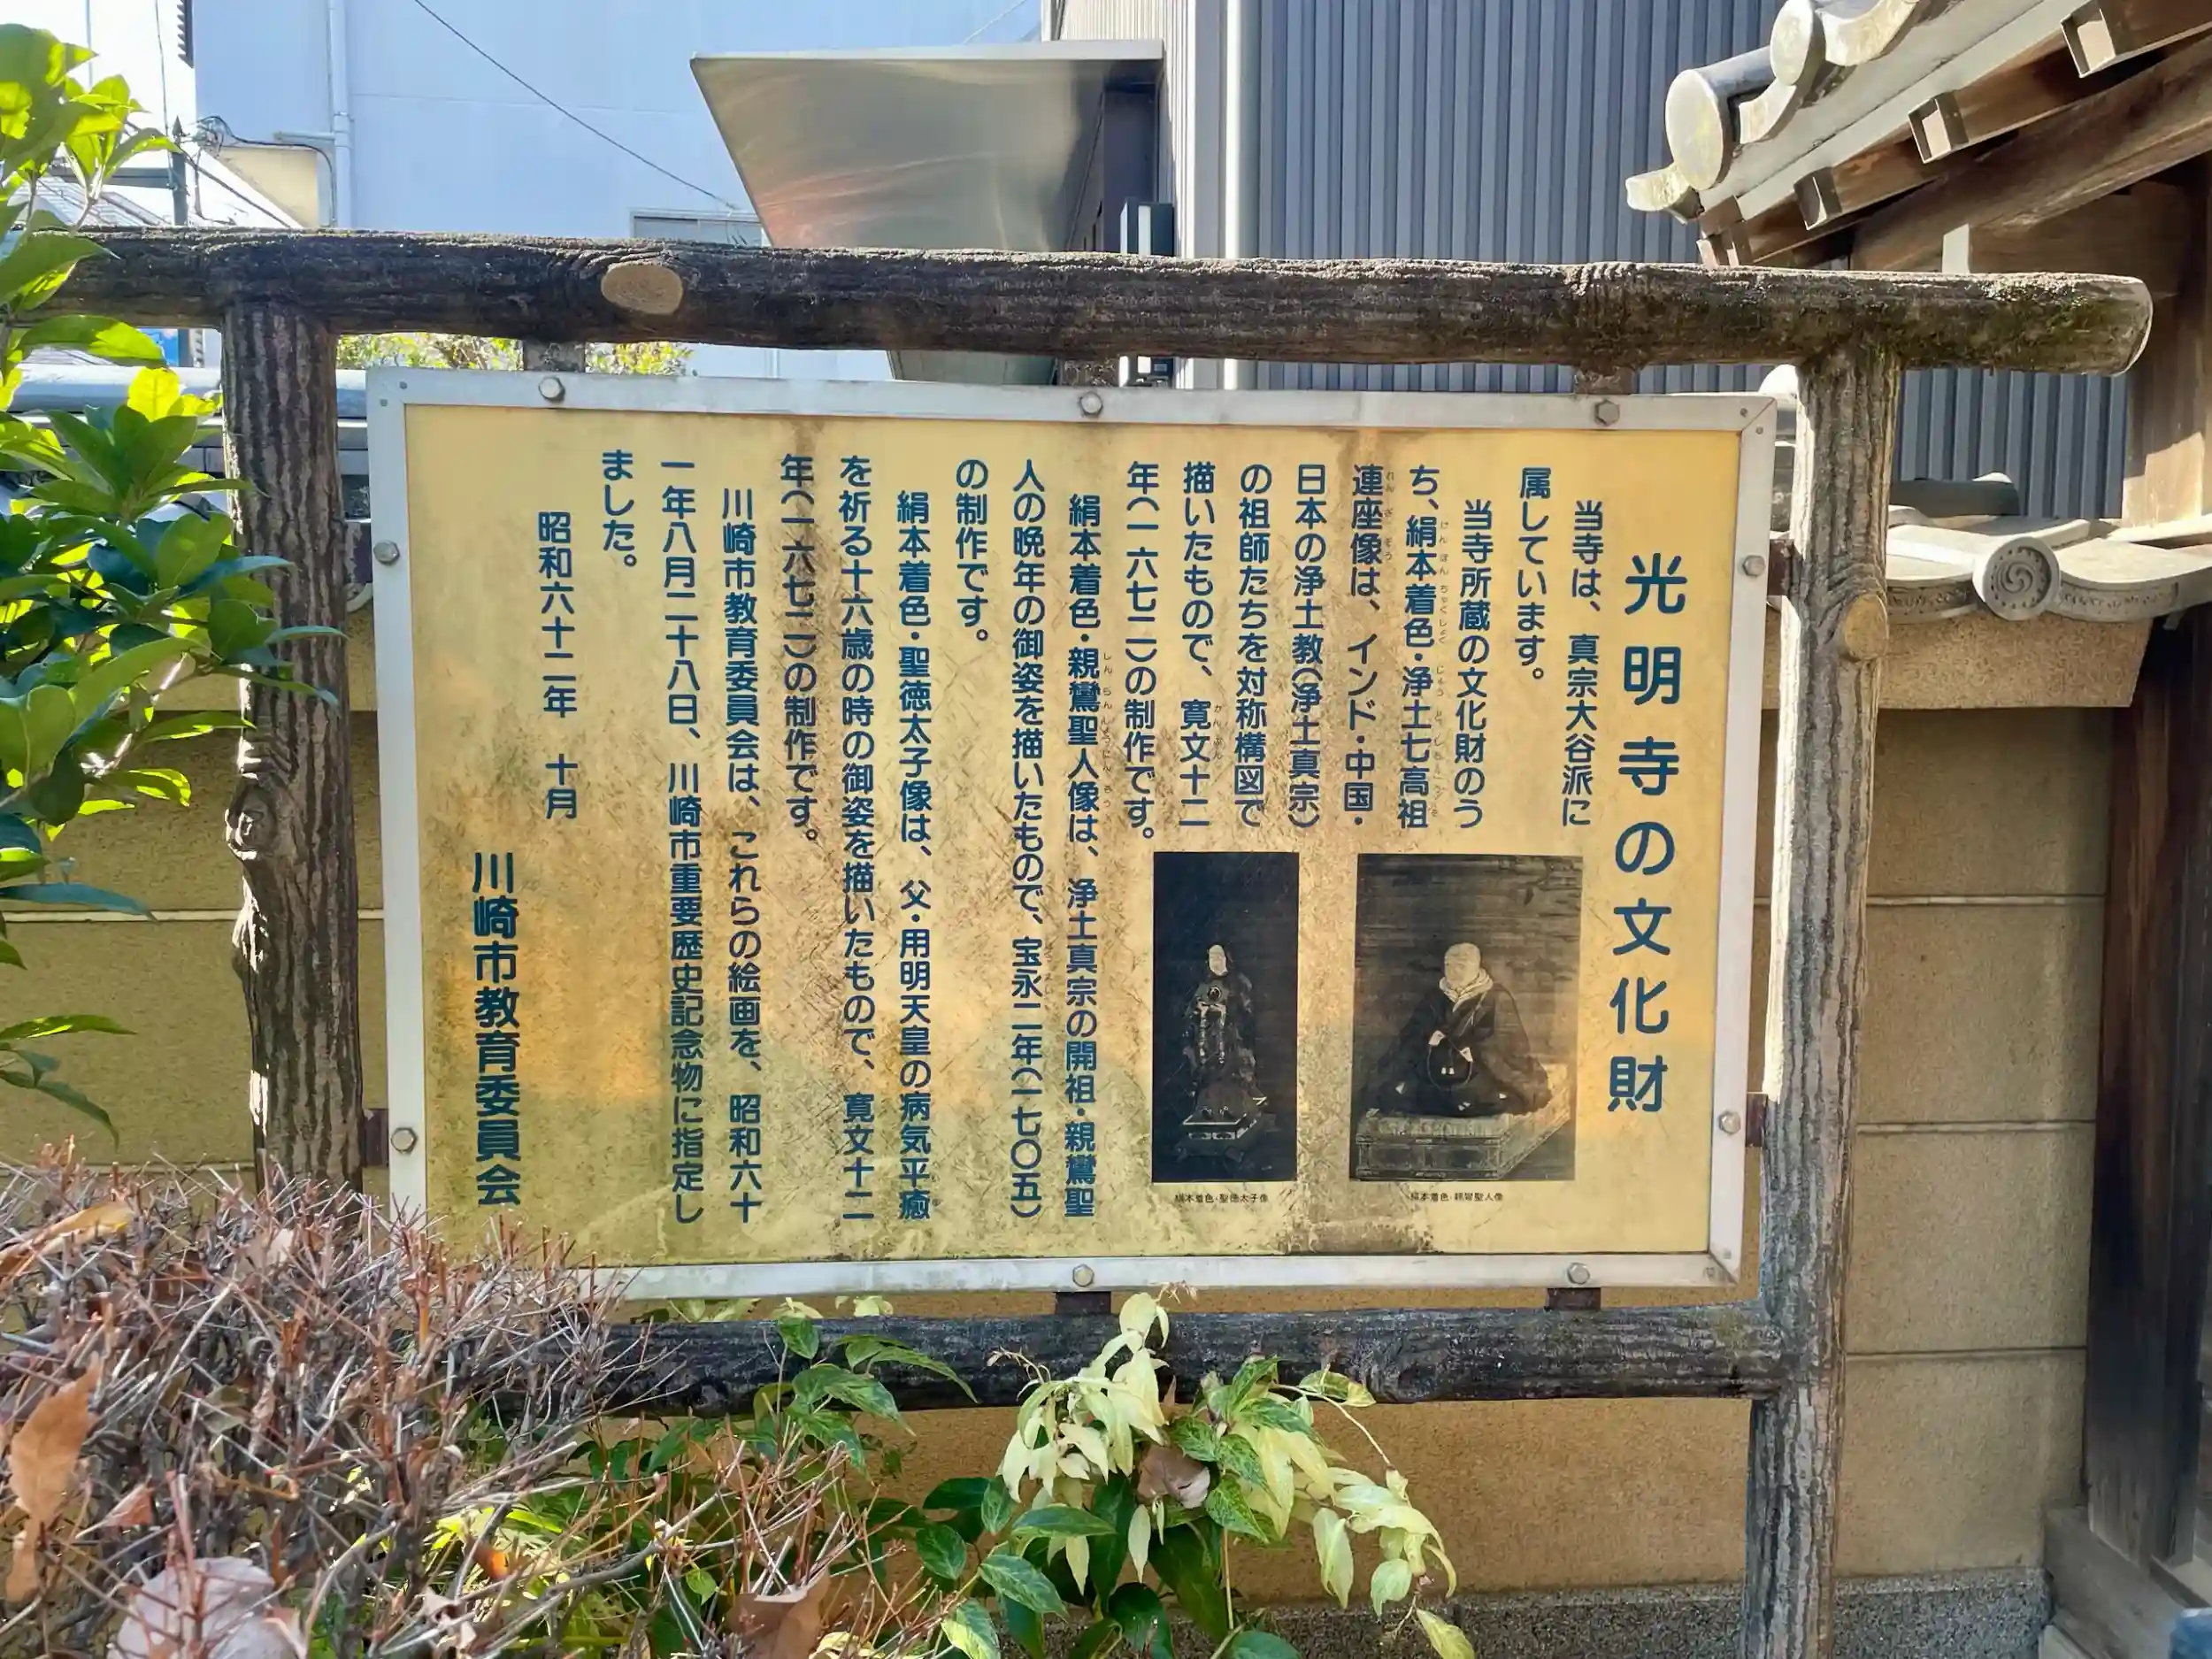 光明寺の文化財
当寺は、真宗大谷派に
属しています。
当寺所蔵の文化財のう
ち、絹本着色・浄土七高祖
連座像は、インド・中国・
日本の浄土教(浄土真宗)
の祖師たちを対称構図で
描いたもので、寛文十二
年(一六七二)の制作です。
絹本着色・親鸞聖人像は、浄土真宗の開祖・親鸞聖
人の晩年の御姿を描いたもので、宝永二年(一七〇五)
の制作です。
絹本着色・聖徳太子像は、父・用明天皇の病気平癒
を祈る十六歳の時の御姿を描いたもので、寛文十二
年(一六七二)の制作です。
川崎市教育委員会は、これらの絵画を、昭和六十
一年八月二十八日、川崎市重要歴史記念物に指定し
ました。
昭和六十二年 十月
川崎市教育委員会
絹本着色・親鸞聖人像
絹本着色・聖徳太子像